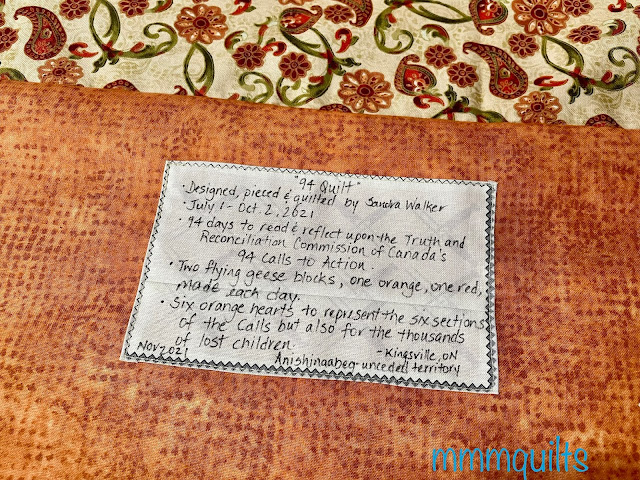 "94 Quilt"
• Designed, pieced & quilted by Sandra Walker
• July 1 - Oct. 2, 2021
• 94 days to read & reflect upon the Truth and
Reconciliation Commission of Canada's
94 Calls to Action.
• Two flying geese blocks, one orange, one red,
made each day.
• Six orange hearts to represent the six sections
of the Calls but also for the thousands
of lost children.
-Kingsville, ON
Nov 2021
Anishinaabeg-unceded territory
mmmquilts